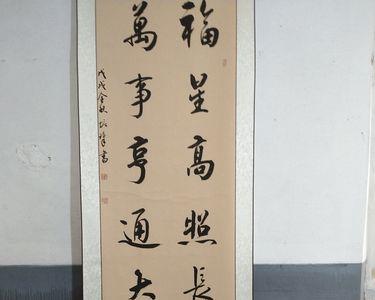 福星高照長
萬事亨通大
戊戌金秋
書